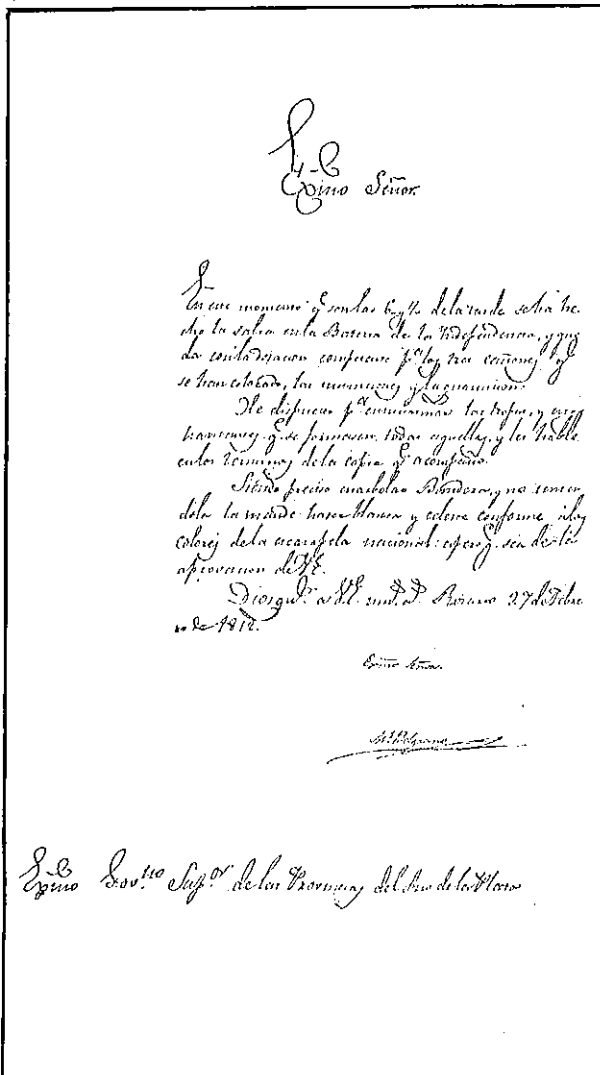 Exmo Señor.
En este momento q.e son las 6 y ½ de la tarde se ha he
cho la salva en la Bateria de la Independencia, y que
da con la dotacion competente p.a los tres cañones q.e
se han colocado, las municiones y la guarnicion.
He dispuesto p.a entusiasmar las tropas, y estos
havitantes, q.e se formasen todas aquellas, y les hablé
en los terminos de la copia q.e acompaño.
Siendo preciso enarbolar Bandera, y no tenien
dola la mandé hacer blanca y celeste conforme à los
colores de la escarapela nacional: espero q.e sea de la
aprovacion de V.E.
Dios gu.e a V.E. m.s a.s Rosario 27 de Febre
ro de 1812.
Exmo Señor.
M.l Belgrano
Exmo Gov.no Sup.or de las Provincias del Rio de la Plata